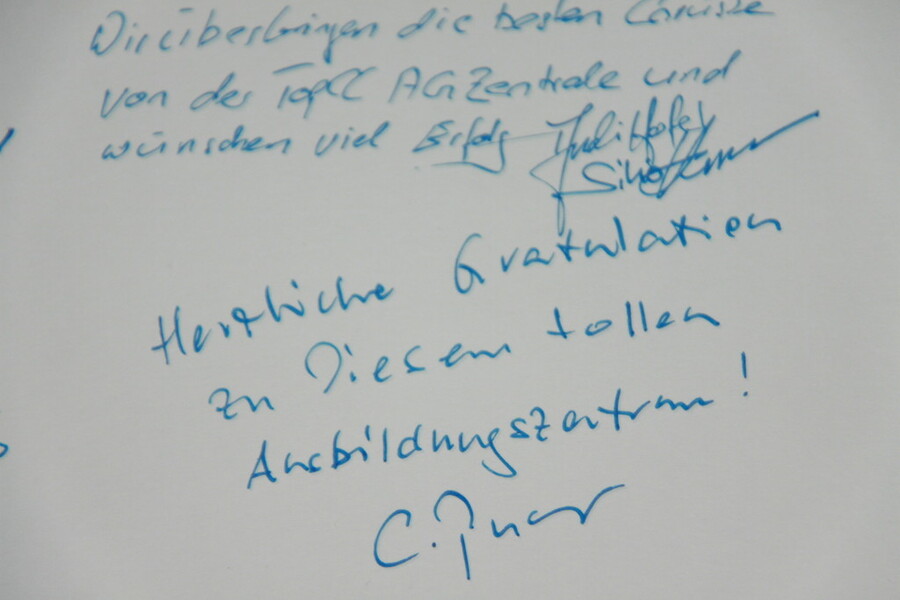 Wir überbringen die besten Grüsse
von der TopCC AG Zentrale und
wünschen viel Erfolg
Herzliche Gratulation
zu Diesem tollen
Ausbildungszentrum!
C.